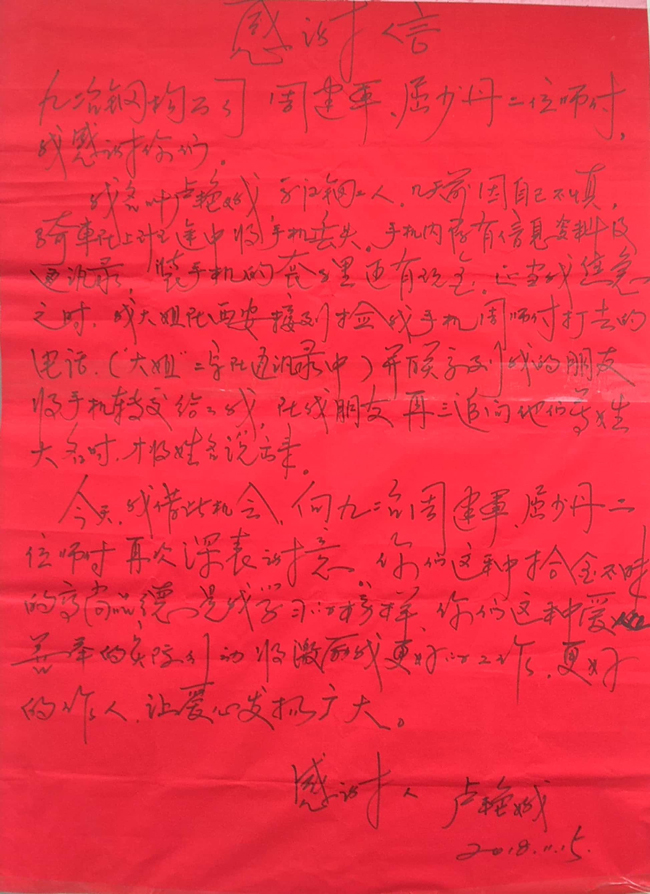 感谢信
九冶钢构公司 周建军、屈少丹二位师付，
我感谢你们。
我名叫卢艳娥 系汉钢工人，几天前因自己不慎，
骑車在上班途中将手机丢失。手机内存有信息资料及
通讯录，装手机的袋里还有现金，正当我焦急
之时，我大姐在西安接到捡我手机周师付打去的
电话，（“大姐”二字在通讯录中）并联系到我的朋友
将手机转交给了我，在我朋友再三追问他们尊姓
大名时，才将姓名说出来。
今天，我借此机会，向九冶周建軍、屈少丹二
位师付再次深表谢意，你们这种拾金不昧
的高尚品德是我学习的榜样，你们这种爱心
善举的实际行动将激励我更好的工作、更好
的作人，让爱心发扬广大。
感谢人 卢艳娥
2018.11.15.